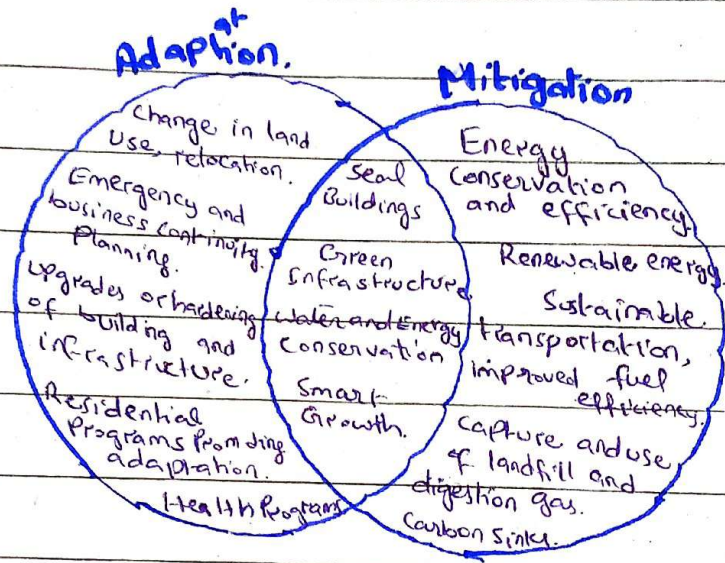 Adaption.
at
Mitigation
Change in land
Use, relocation.
Emergency and
business continuity.
Planning.
Upgrades or hardening
of building and
infrastructure.
Residential
Programs Promoting
adaptation.
Health Programs
Seal
Buildings
Green
Infrastructure.
Water and Energy
Conservation
Smart
Growth.
Energy
Conservation
and efficiency.
Renewable energy.
Sustainable.
transportation,
improved fuel
efficiency.
Capture and use
of landfill and
digestion gas.
Carbon Sinks.